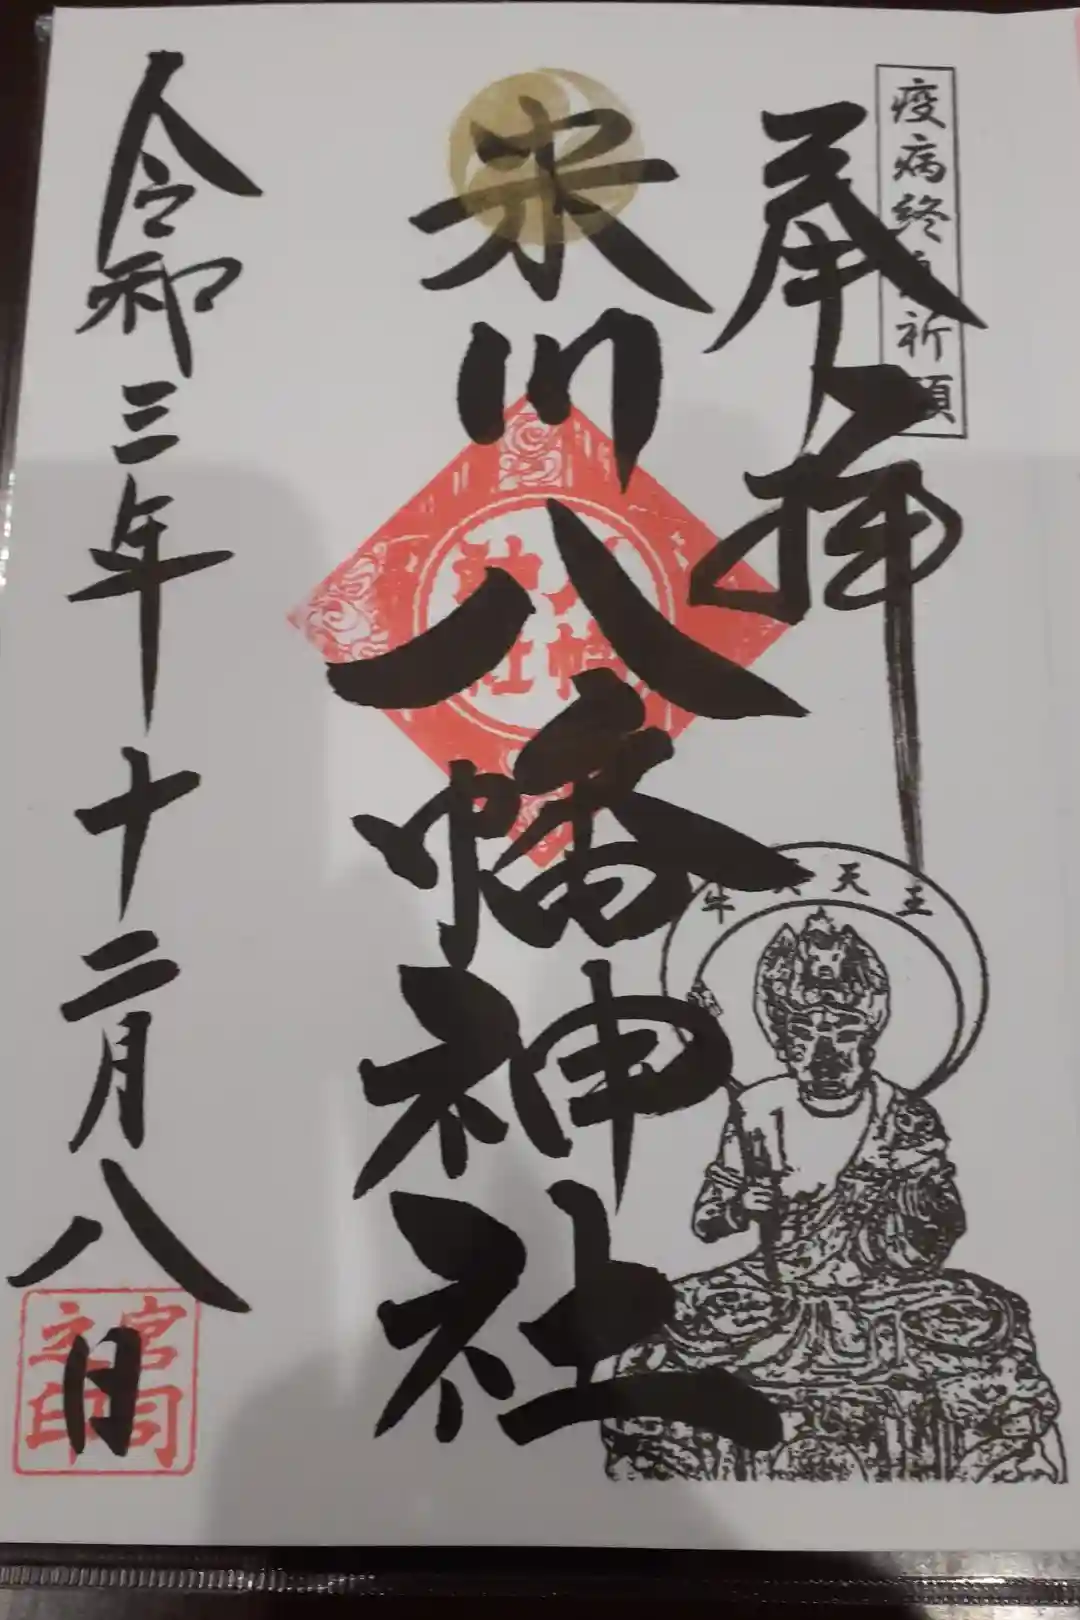 疫病終息祈願
奉拝
米川八幡神社
八幡
神社
牛頭天王
令和三年十二月八日
宮司
之印